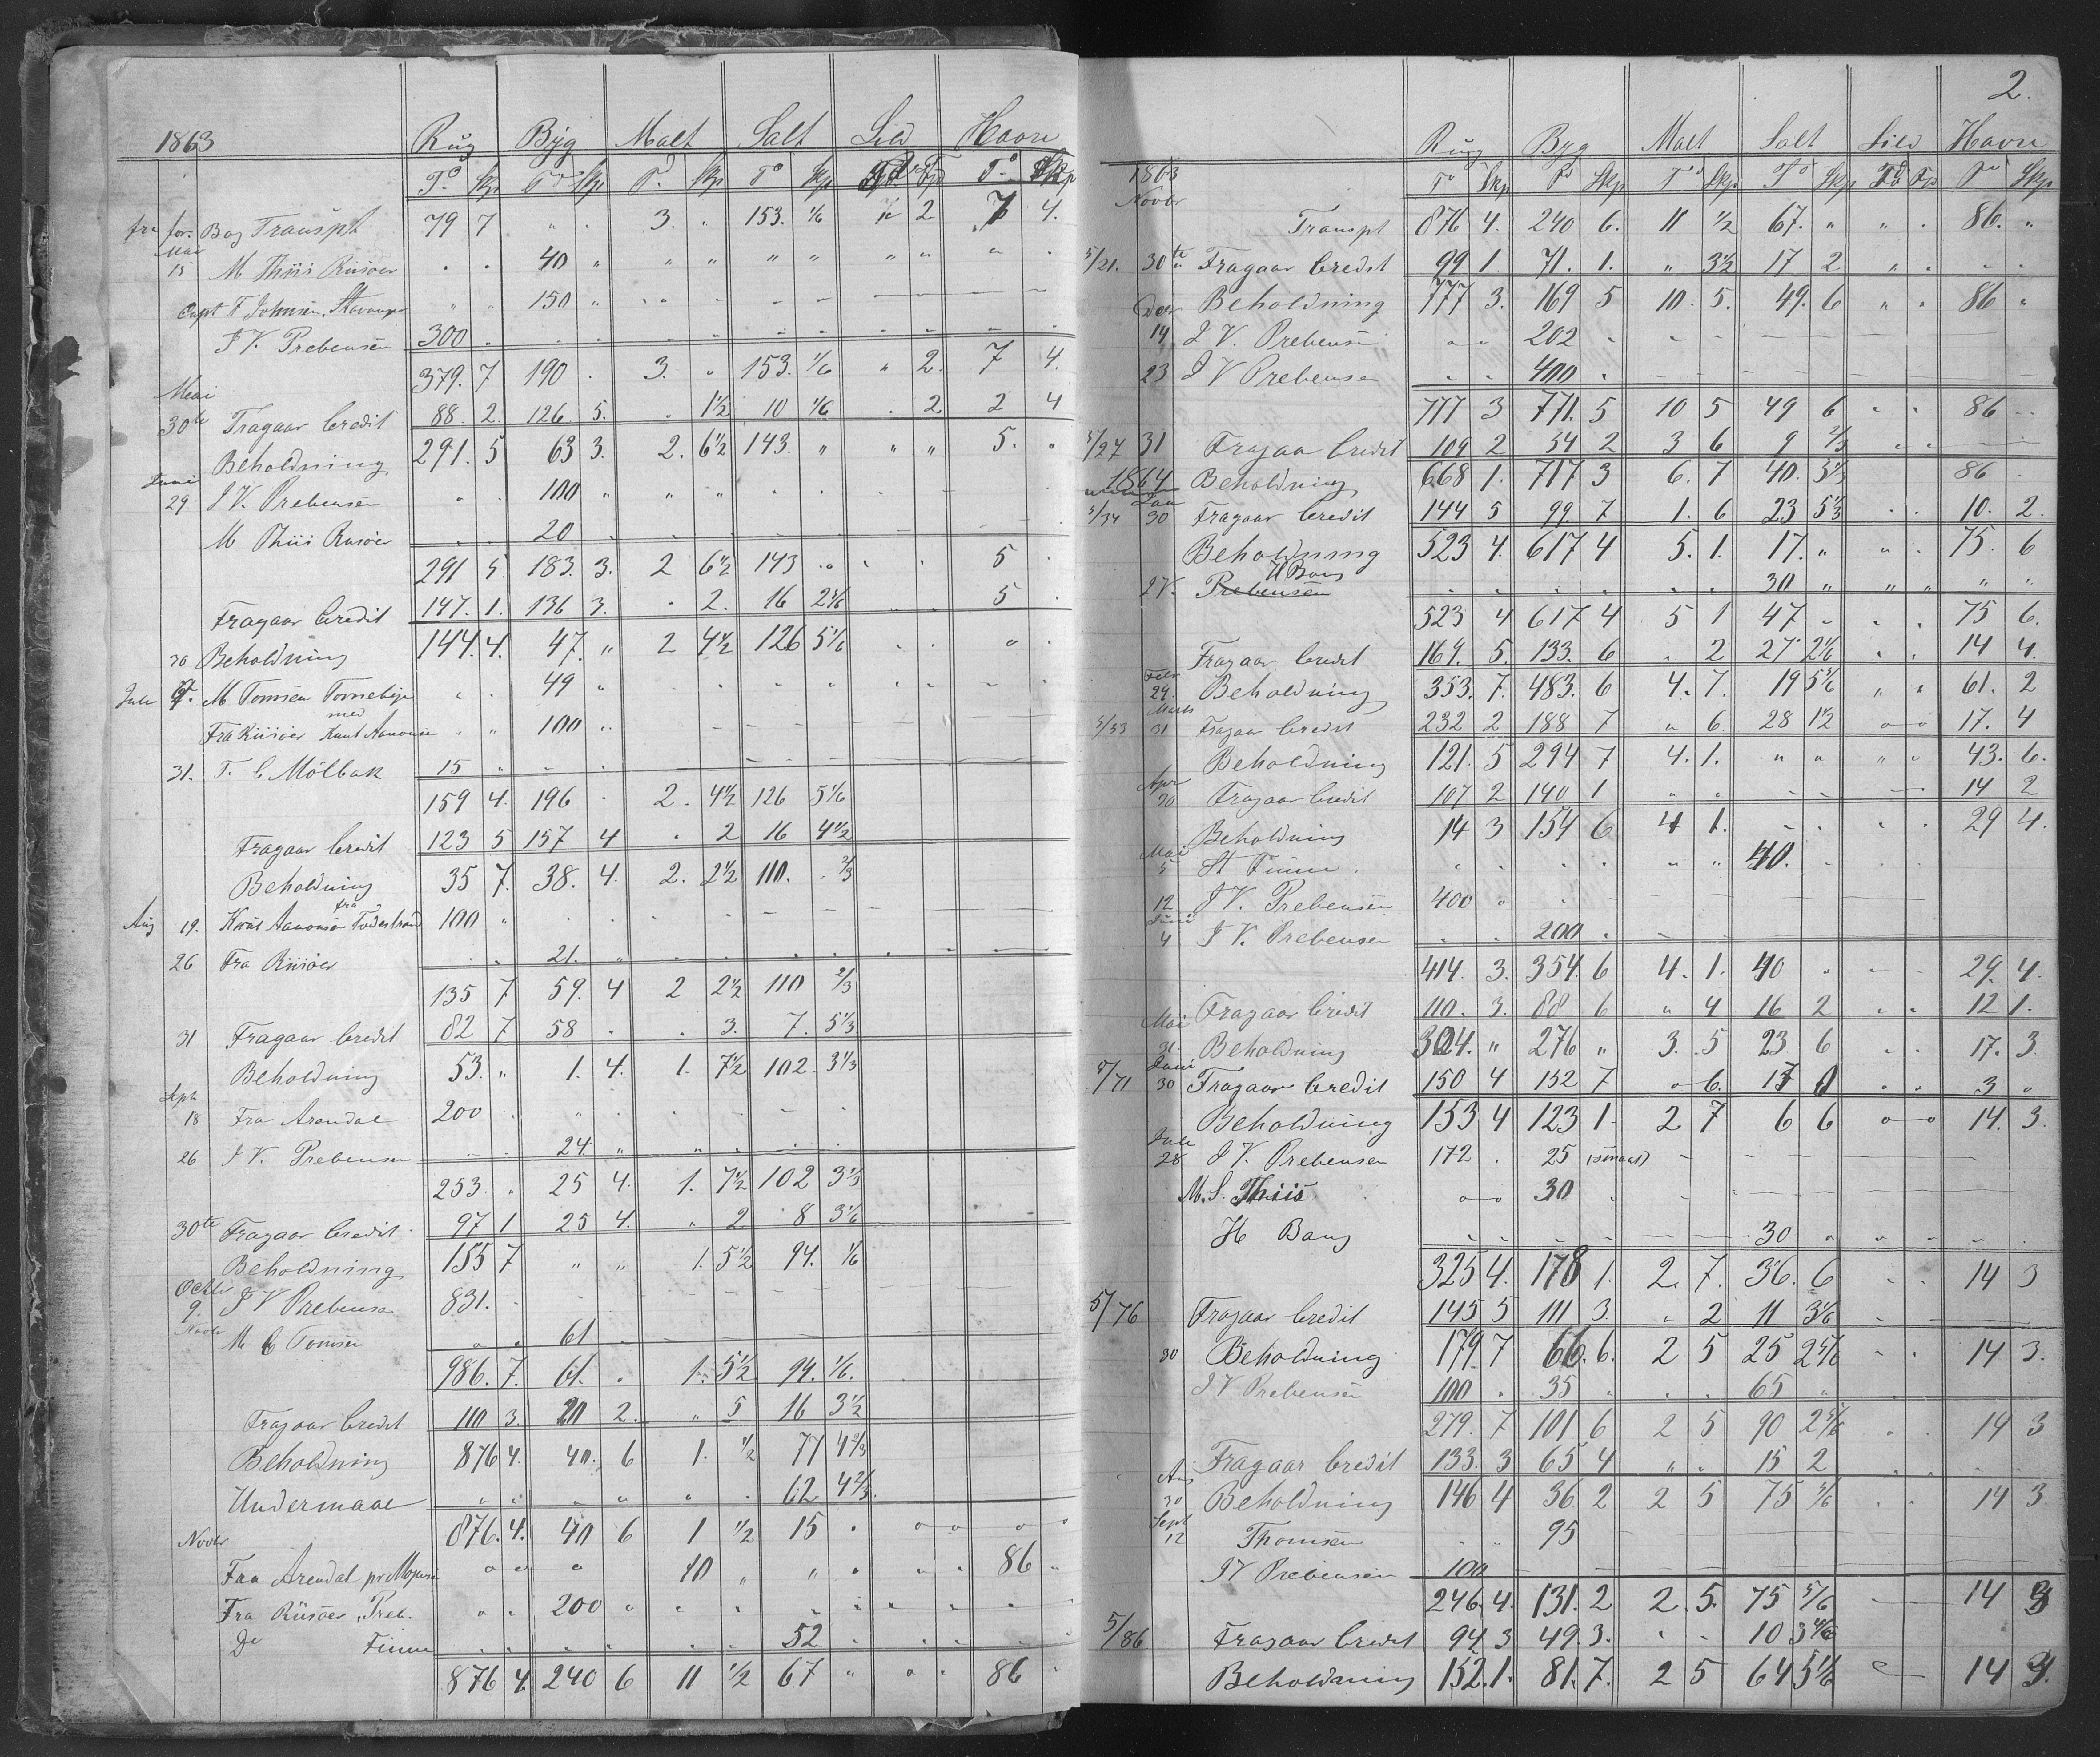 1863 Rug Byg Malt Salt Sild Havre
Td Skp Td Skp Td Skp Td Skp Td Fjd Td Skp
fra for. Bog Transpt 79 7 " " 3. " 153. 1/6 " 2 7 4.
Mai
15 M Thiis Riisöer " " 40 " " " " " " " " "
Capt F Johnsen, Stavanger " " 150 " " " – – – – – –
J V. Prebensen 300 . . . . . . . . . . .
379. 7 190 . 3. " 153. 1/6 " 2. 7 4.
Mai
30te Fragaar Credit 88. 2. 126. 5. . 1 1/2 10 1/6 . 2 2 4
Beholdning 291. 5 63 3. 2. 6 1/2 143. " " " 5. "
Juni
29 J V. Prebensen . . 100 " " " " . . . – –
M Thiis Riisöer . . 20 . . . – – – – – .
291 5. 183. 3. 2 6 1/2 143 " . . 5 .
Fragaar Credit 147. 1. 136 3. . 2. 16 2 5/6 . . 5 .
30 Beholdning 144. 4. 47. " 2 4 1/2 126 5 1/6 . . " .
Jule 9. M Tomsen Tornebye . . 49 " . . . . . . – .
med
Fra Riisöer Knut Aanonsen " " 100 " . – – – – – – –
31. T. C Mölbak 15 " – – . – – – – – – –
159 4. 196 . 2. 4 1/2 126 5 1/6
Fragaar Credit 123 5 157 4 . 2 16 4 1/2
Beholdning 35 7. 38. 4. 2. 2 1/2 110. . 2/3
fra
Aug 19. Knut Aanonsen Tvedestrand 100 " . . . . – – – – – –
26 Fra Riisöer . . 21. " . . . . . . . .
135 7 59. 4 2 2 1/2 110 2/3
31 Fragaar Credit 82 7 58 . . 3. 7. 5 1/3
Beholdning 53. " 1. 4. 1. 7 1/2 102. 3 1/3
Spt
18 Fra Arendal 200 . " . . . – .
26 J V. Prebensen – – 24 " " . – .
253. . 25 4. 1. 7 1/2 102 3 1/3
30te Fragaar Credit 97 1 25 4. " 2 8 3 1/6
Beholdning 155 7 " " 1. 5 1/2 94. 1/6
Octbr
9. J V Prebensen 831. . – – – – – – – –
Novbr
M C Tomsen " . 61 . – – – –
986. 7. 61. . 1. 5 1/2 94. 1/6.
Fragaar Credit 110 3. 20 2. " 5 16 3 1/2
Beholdning 876 4. 40. 6 1. 1/2 77 4 2/3
Undermaal " " " " " . 62 4 2/3.
Novbr 876. 4. 40 6 1 1/2 15 . " " " "
Fra Arendal pr " " " 10 " " . . . 86 "
Fra Riisöer, Preb. " . 200 " " " . . " " " .
Do Finne . . . . . . 52 . . . . .
876 4. 240 6 11 1/2 67 " " . 86 .
2.
Rug Byg Malt Salt Sild Havre
1863 Td Skp Td Skp Td Skp Td Skp Td Fjd Td Skp
Novbr
Transpt 876 4. 240 6. 11 1/2 67. " " . 86. "
5/21. 30te Fragaar Credit 99 1. 71. 1. " 3 1/2 17 2 " " . .
Beholdning 777 3. 169 5 10. 5. 49. 6 " " 86 "
Decr
14 J V. Prebensen " " 202 . . – – – – –
23 J V Prebensen . . 400 . – – – – – –
777 3 771. 5 10 5 49 6 . . 86 . .
5/27 31 Fragaar Credit 109 2 54 2 3 6 9 2/3 . . – –
1864 Beholdning 668 1. 717 3 6. 7 40. 5 1/3 86 .
Jan
5/34 30 Fragaar Credit 144 5 99. 7 1. 6 23 5 1/3 . . 10. 2.
Beholdning 523 4. 617 4 5. 1. 17. " " . 75. 6
H Bang
J V. Prebensen . . . . . . 30 " " " " "
523 4 617 4 5 1 47 . . . 75 6.
Fragaar Credit 169. 5. 133. 6 . 2 27 2 1/6 . . 14 4.
Febr
29. Beholdning 353. 7. 483. 6 4. 7. 19 5 5/6 " . 61. 2
Marts
5/53 31 Fragaar Credit 232 2 188 7 " 6 28 1 1/2 " " 17. 4
Beholdning 121. 5 294 7 4. 1. " " " " 43. 6.
Apr
30 Fragaar Credit 107 2 140 1 " " – – – 14 2
Beholdning 14 3 154 6 4 1. . . . . 29 4.
Mai
5 St Finne . . . . . " " 40. . . . .
12 J V. Prebensen 400 " . – – – – – –
Juni
4 J V. Prebensen . . 200 . – – – – – –
414. 3. 354. 6 4. 1. 40 . – – 29. 4.
Mai Fragaar Credit 110. 3. 88 6 " 4 16 2 . . 12 1.
31. Beholdning 304. " 276 " 3. 5 23 6 . . 17. 3.
Juni
5/71 30 Fragaar Credit 150 4 152 7 " 6. 17 0 . . 3 "
Beholdning 153 4 123 1. 2 7 6 6 " " 14. 3.
Jule
28 J V. Prebensen 172 . 25 (smaat) – – – – – –
M. S. Thiis " " 30 . – – – – – –
H Bang . . . . – – 30 . . . – .
325 4. 178 1. 2. 7. 36. 6 . . 14 3
5/76 Fragaar Credit 145 5 111 3. " 2 11 3 1/6 . – – –
30 Beholdning 179. 7 66. 6. 2 5 25 2 5/6 . . 14 3.
J V Prebensen 100 . 35 " . . 65 " . . . .
279. 7 101 6 2 5 90 2 5/6 . . 14 3
Fragaar Credit 133. 3 65 4 " . 15 2 . . . .
Aug
30 Beholdning 146 4 36 2 2 5 75 5/6 . . 14 3
Sept
12 Thomsen . " 95 – – – – – – –
J V Prebensen 100 – – – – – – – –
246. 4. 131. 2 2. 5. 75 5/6 – – 14 3
5/86 Fragaar Credit 94 3 49. 3. . . 10 3
Beholdning 152. 1. 81. 7. 2 5 64 5 1/6 – 14 3.